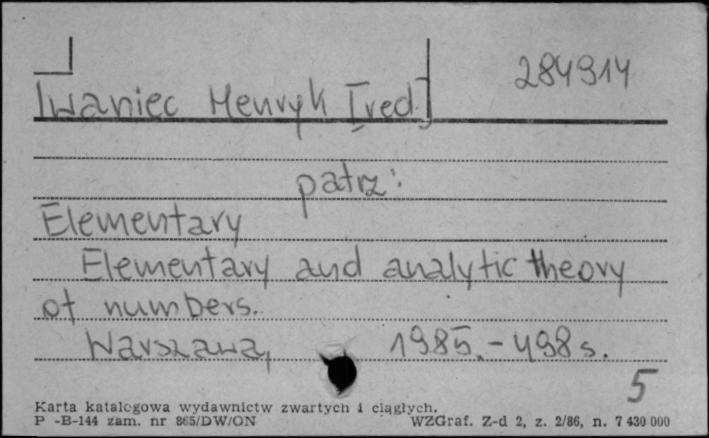 284914
Iwaniec Henryk [red.]
patrz:
Elementary
Elementary and analytic theory
of numbers.
Warszawa, 1985. - 498 s.
5
Karta katalogowa wydawnictw zwartych i ciągłych.
P -B-144 zam. nr 865/DW/ON WZGraf. Z-d 2, z. 2/86, n. 7 430 000